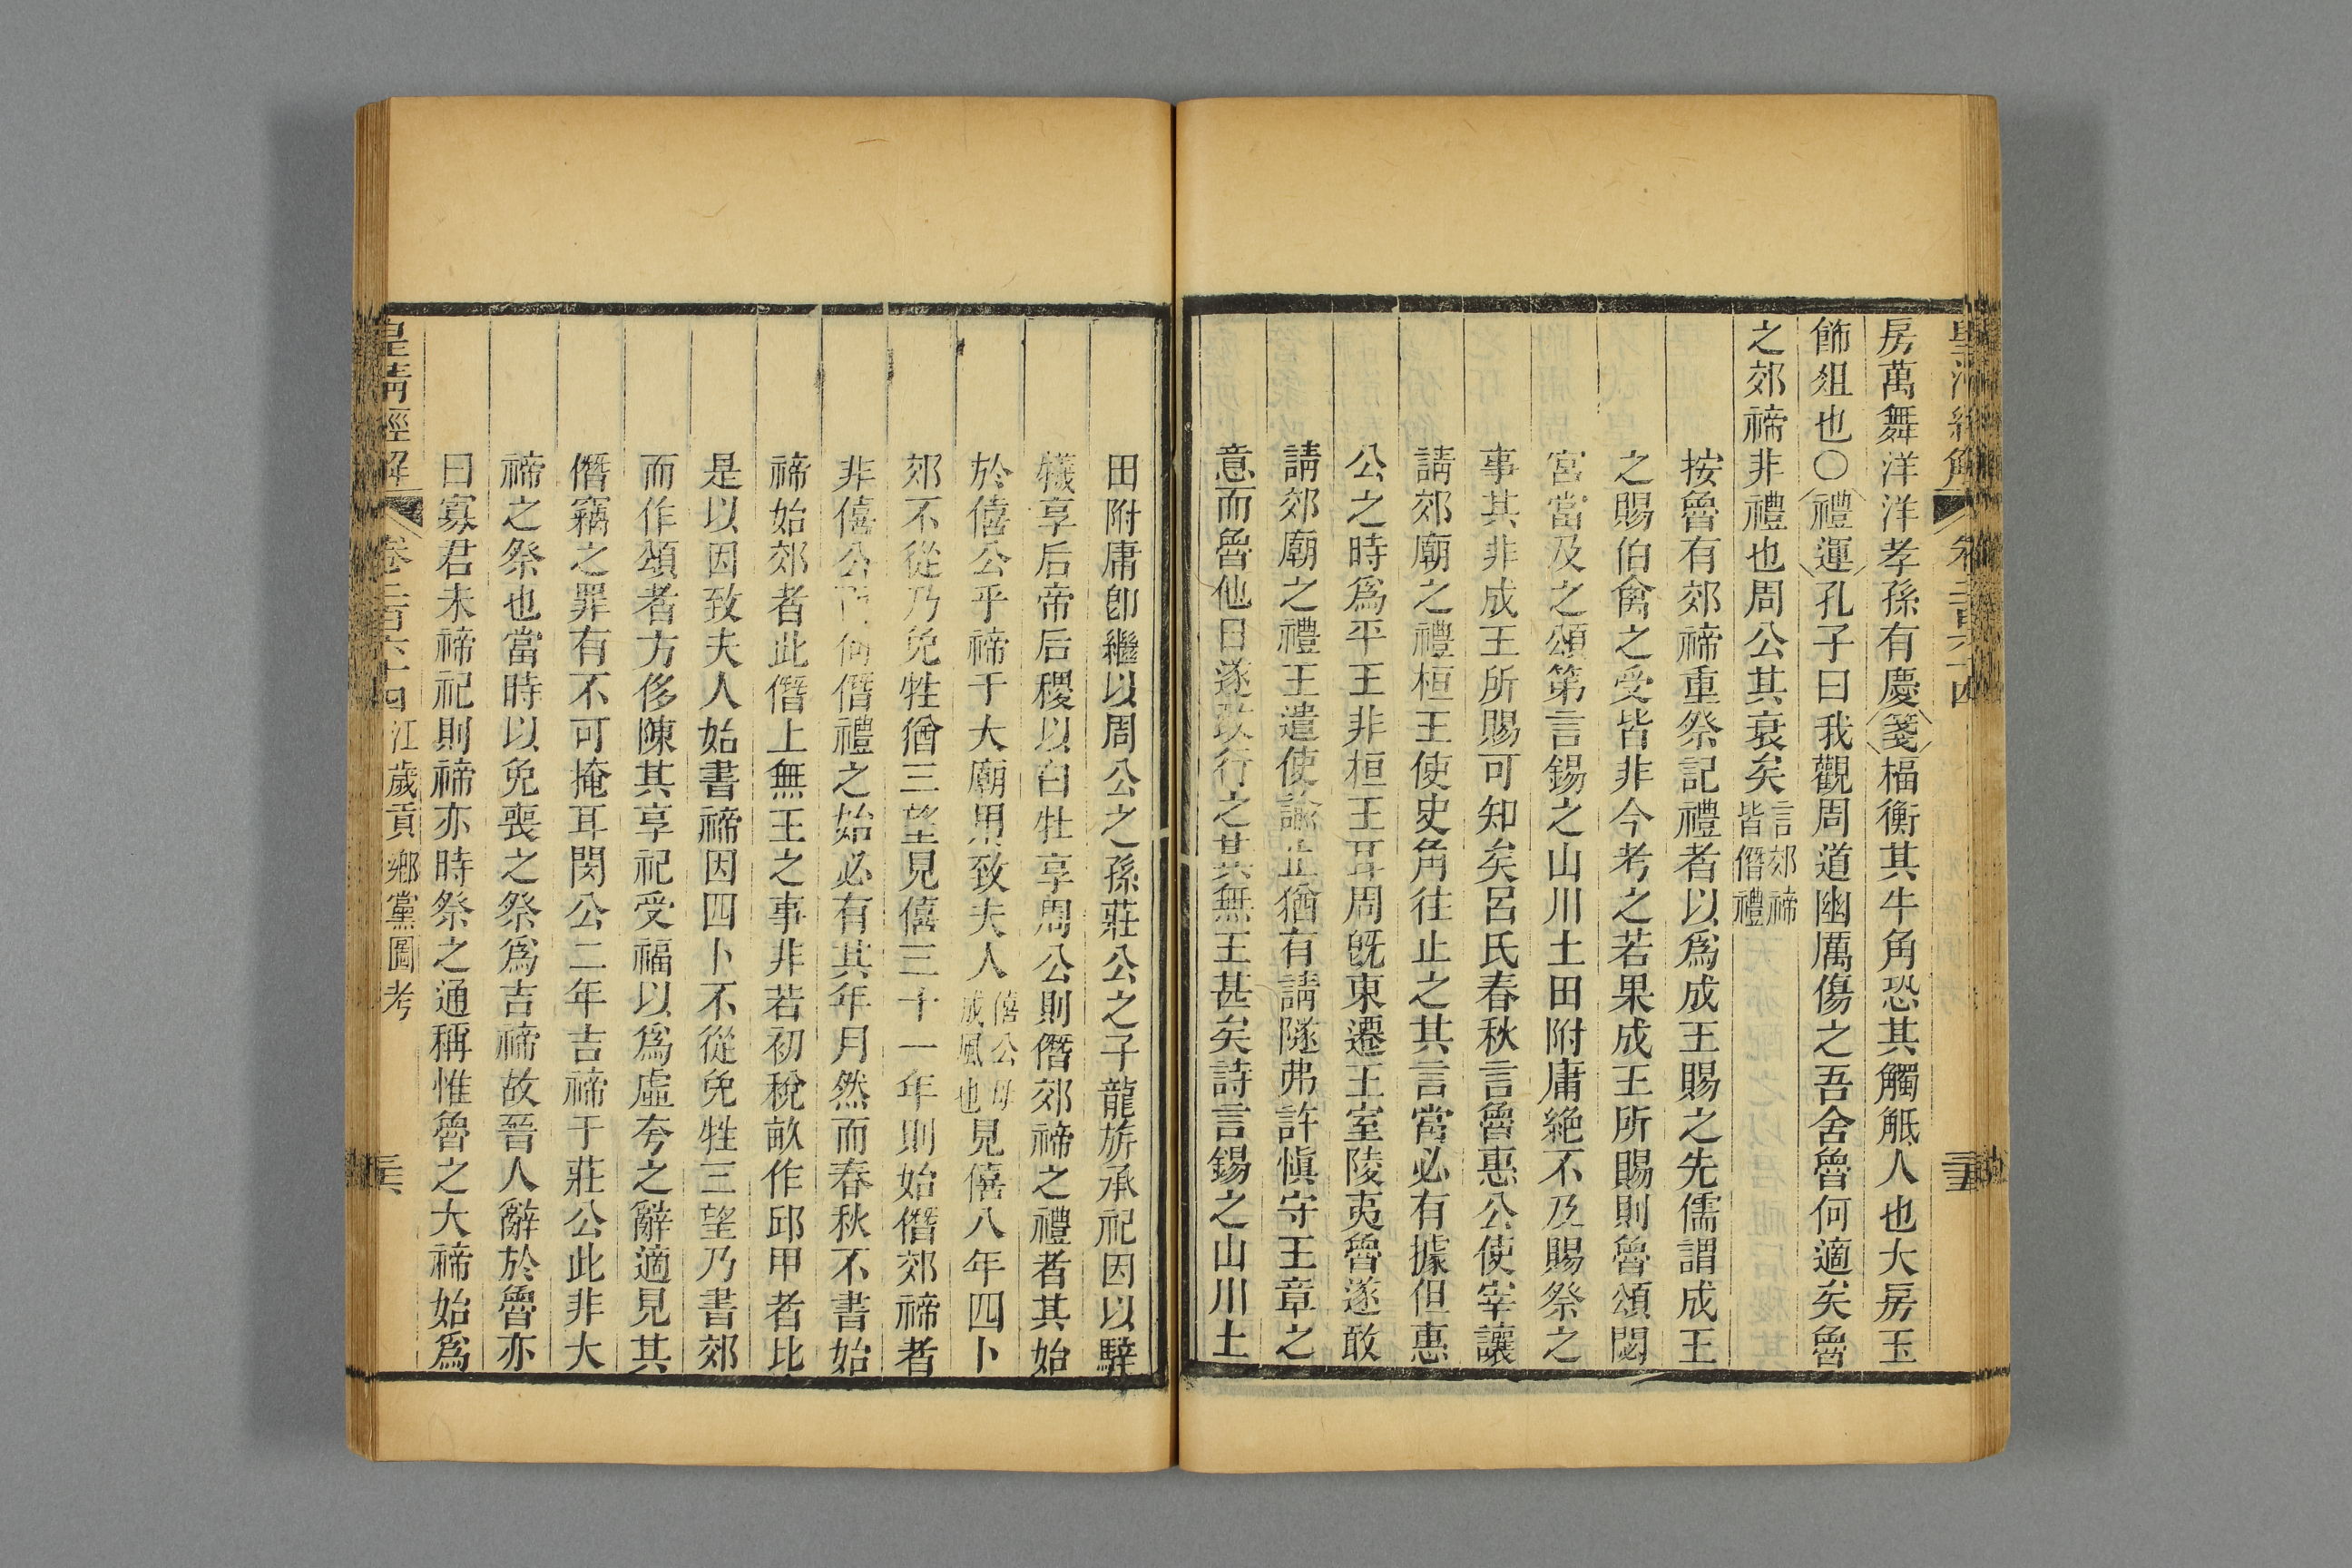 房萬舞洋洋孝孫有慶箋楅衡其牛角恐其觸觝人也大房玉
飾俎也〇禮運孔子曰我觀周道幽厲傷之吾舍魯何適矣魯
之郊禘非禮也周公其衰矣言郊禘皆僭禮
按魯有郊禘重祭記禮者以爲成王賜之先儒謂成王
之賜伯禽之受皆非今考之若果成王所賜則魯頌閟
宮當及之頌第言錫之山川土田附庸絶不及賜祭之
事其非成王所賜可知矣呂氏春秋言魯惠公使宰讓
請郊廟之禮桓王使史角往止之其言當必有據但惠
公之時爲平王非桓王耳周旣東遷王室陵夷魯遂敢
請郊廟之禮王遣使諭止猶有請隧弗許愼守王章之
意而魯他日遂敢行之其無王甚矣詩言錫之山川土
田附庸卽繼以周公之孫莊公之子龍旂承祀因以騂
犧享后帝后稷以白牡享周公則僭郊禘之禮者其始
於僖公乎禘于大廟用致夫人僖公母成風也見僖八年四卜
郊不從乃免牲猶三望見僖三十一年則始僭郊禘者
非僖公而何僭禮之始必有其年月然而春秋不書始
禘始郊者此僭上無王之事非若初稅畝作邱甲者比
是以因致夫人始書禘因四卜不從免牲三望乃書郊
而作頌者方侈陳其享祀受福以爲虛夸之辭適見其
僭竊之罪有不可掩耳閔公二年吉禘于莊公此非大
禘之祭也當時以免喪之祭爲吉禘故晉人辭於魯亦
曰寡君未禘祀則禘亦時祭之通稱惟魯之大禘始爲
皇清經解 卷二百六十四 江歲貢鄉黨圖考